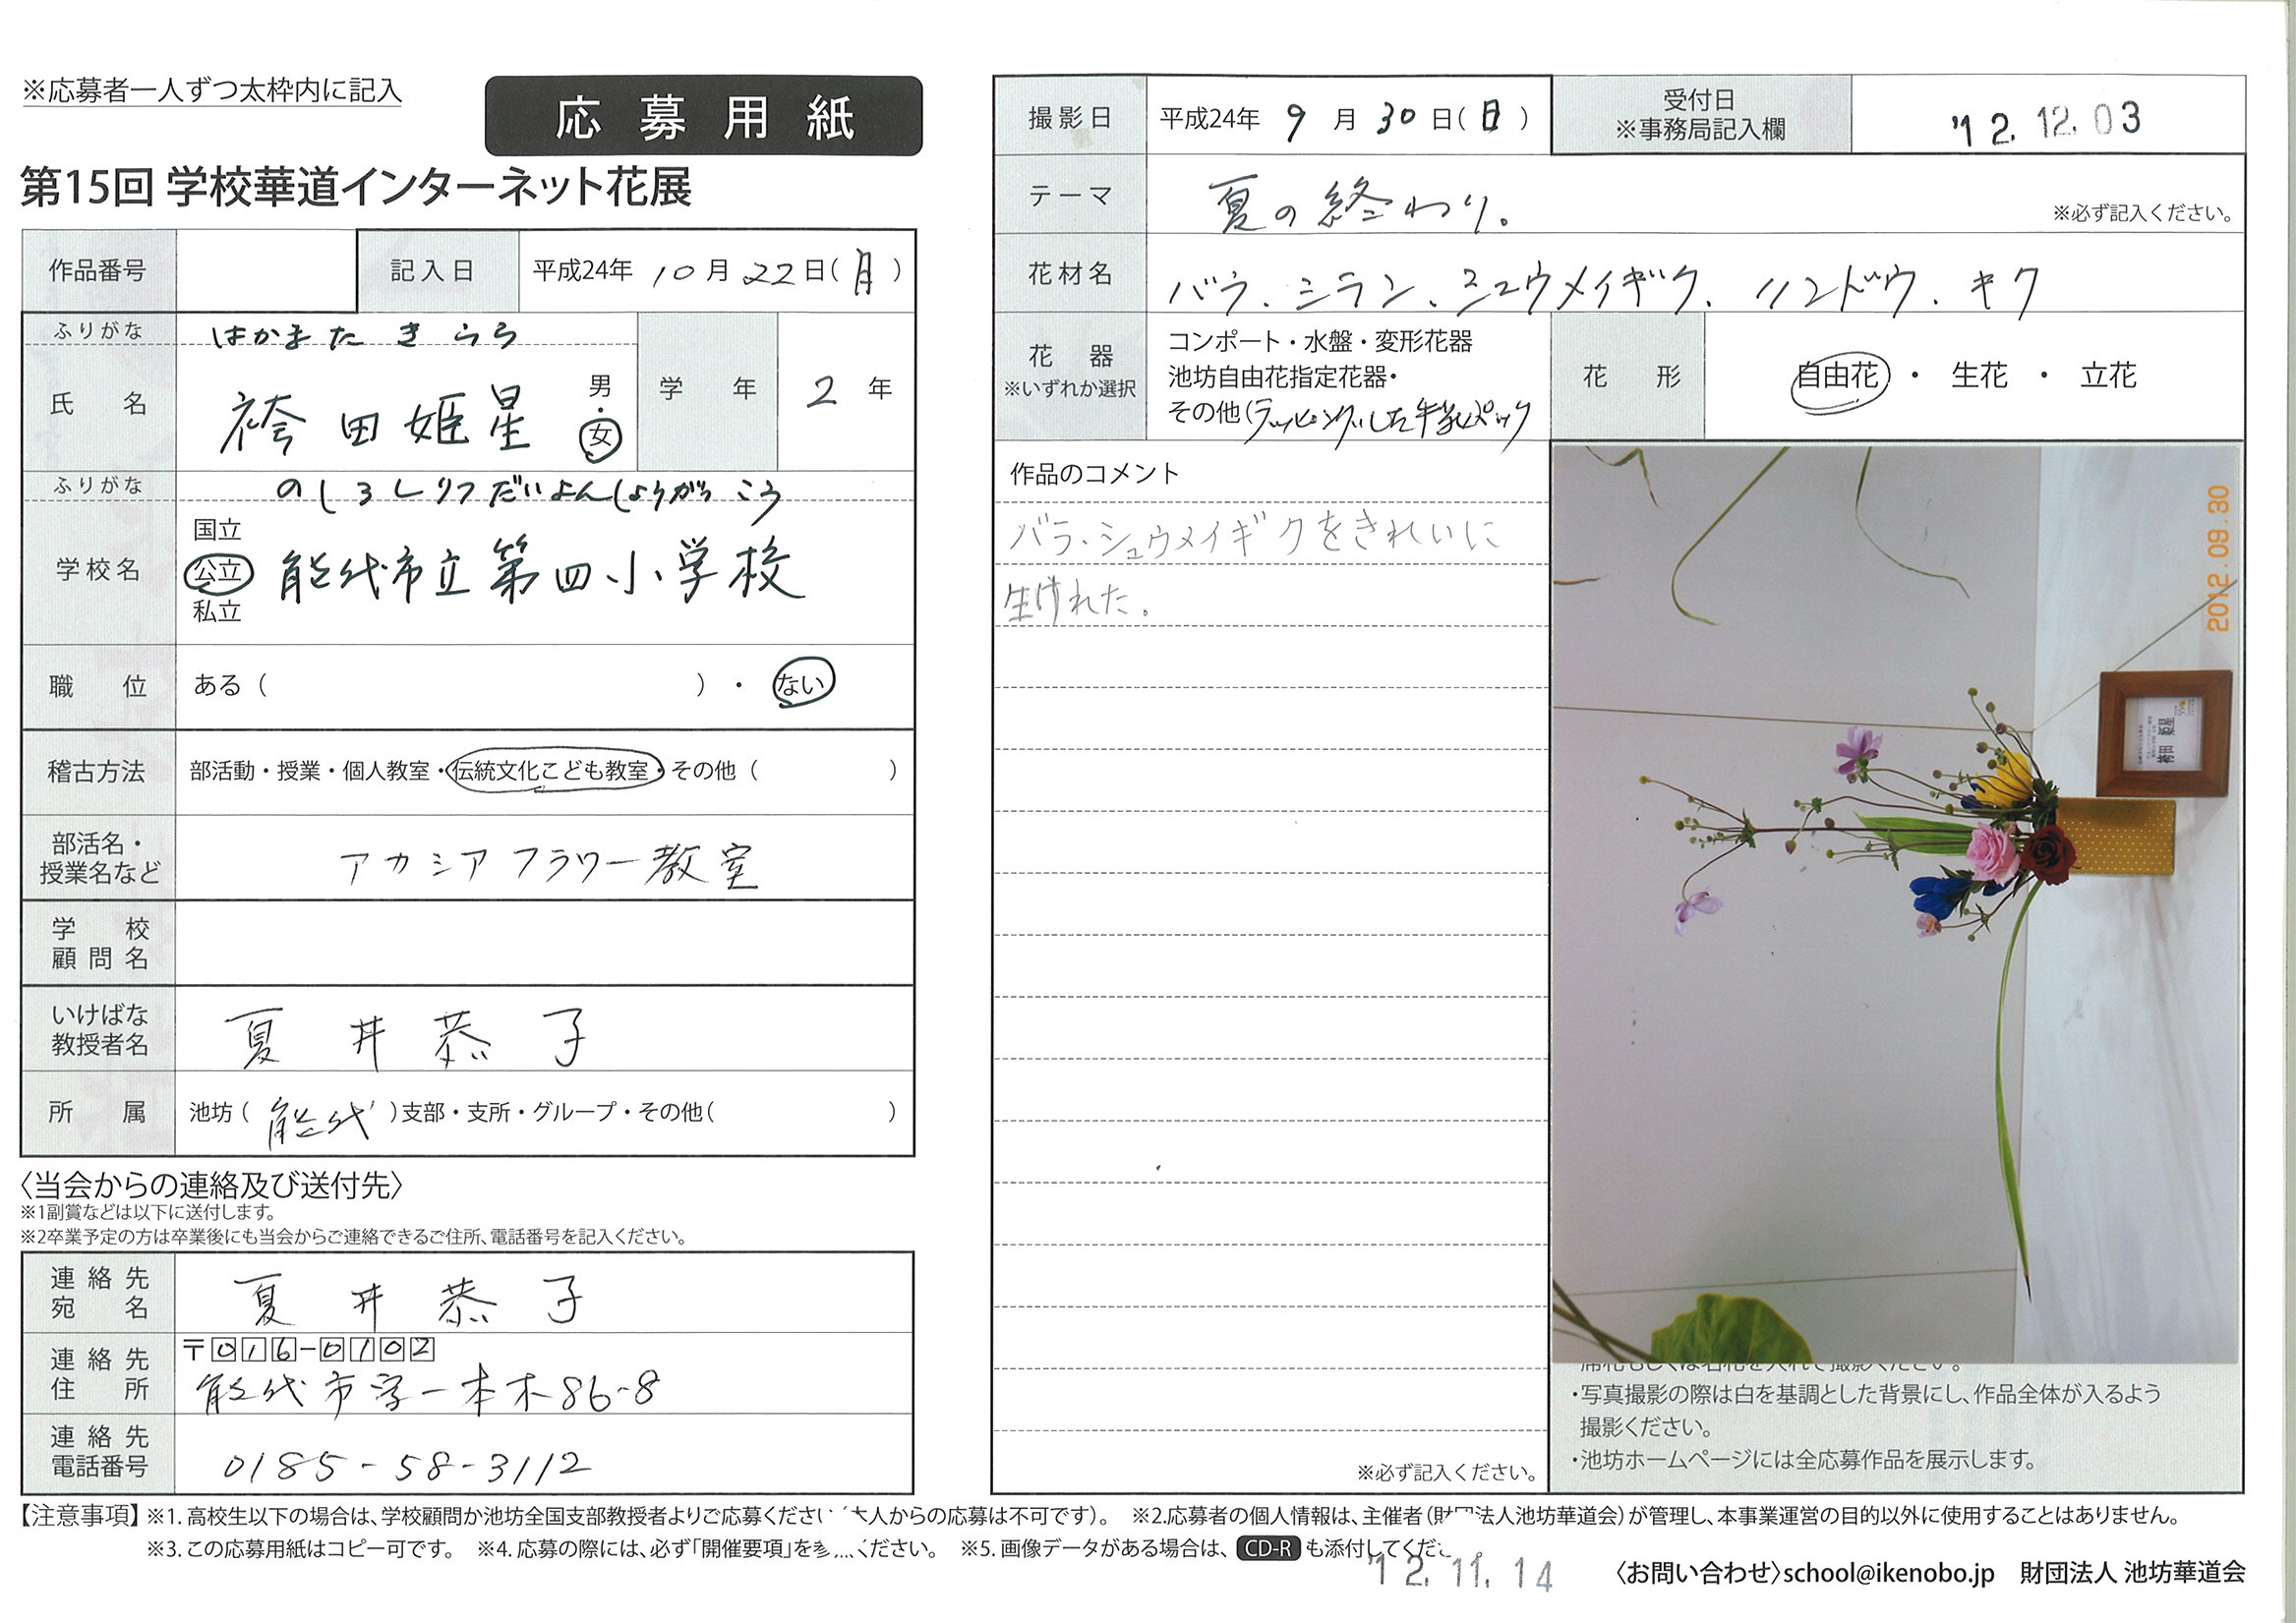 ※応募者一人ずつ太枠内に記入
応募用紙
第15回 学校華道インターネット花展
作品番号
記入日 平成24年 10月 22日(月)
ふりがな はかまた きらら
氏名 袴田姫星 男・女
学年 2年
ふりがな のしろしりつだいよんしょうがっこう
学校名 国立 公立 私立 能代市立第四小学校
職位 ある( )・ない
稽古方法 部活動・授業・個人教室・伝統文化こども教室・その他( )
部活名・授業名など アカシアフラワー教室
学校顧問名
いけばな教授者名 夏井恭子
所属 池坊(能代)支部・支所・グループ・その他( )
〈当会からの連絡及び送付先〉
※1副賞などは以下に送付します。
※2卒業予定の方は卒業後にも当会からご連絡できるご住所、電話番号を記入ください。
連絡先宛名 夏井恭子
連絡先住所 〒016-0102
能代市字一本木86-8
連絡先電話番号 0185-58-3112
撮影日 平成24年 9月 30日(日)
受付日 ※事務局記入欄 '12.12.03
テーマ 夏の終わり。 ※必ず記入ください。
花材名 バラ、ミラン、シュウメイギク、リンドウ、キク
花器 ※いずれか選択
コンポート・水盤・変形花器
池坊自由花指定花器・
その他(ラッピングした牛乳パック
花形 自由花・生花・立花
作品のコメント
バラ、シュウメイギクをきれいに
生けれた。
※必ず記入ください。
2012.09.30
袴田 姫星
・写真撮影の際は白を基調とした背景にし、作品全体が入るよう
撮影ください。
・池坊ホームページには全応募作品を展示します。
【注意事項】※1. 高校生以下の場合は、学校顧問か池坊全国支部教授者よりご応募ください 本人からの応募は不可です)。 ※2.応募者の個人情報は、主催者(財団法人池坊華道会)が管理し、本事業運営の目的以外に使用することはありません。
※3. この応募用紙はコピー可です。 ※4. 応募の際には、必ず「開催要項」を ください。 ※5. 画像データがある場合は、CD-R も添付してくだ
'12.11.14
〈お問い合わせ〉school@ikenobo.jp 財団法人 池坊華道会